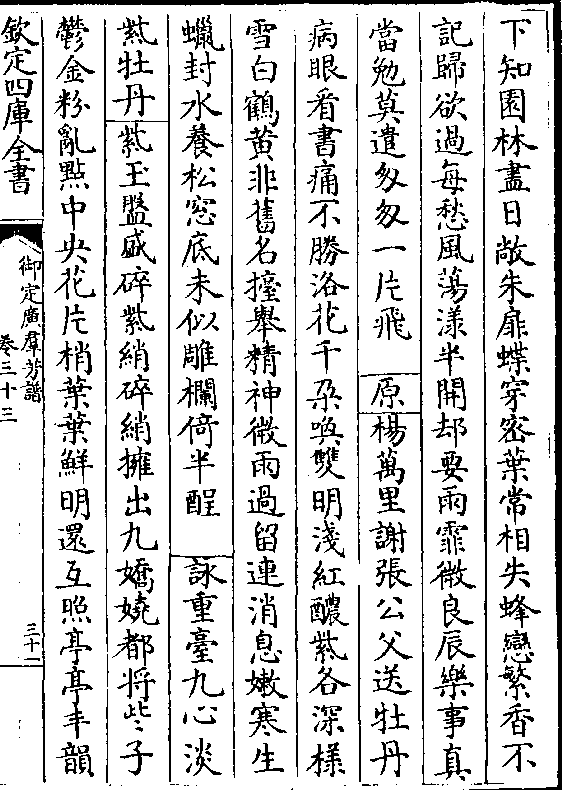 下知園林盡日敞朱扉蝶穿宻葉常相失蜂戀繁香不
記歸欲過每愁風蕩漾半開却要雨霏微良辰樂事真
當勉莫遣匆匆一片飛　原楊萬里謝張公父送牡丹
病眼看書痛不勝洛花千朶喚雙明淺紅醲紫各深様
雪白鶴黄非舊名擡舉精神微雨過留連消息嫩寒生
蠟封水養松窓底未似雕欄倚半酲　詠重臺九心淡
紫牡丹紫玉盤盛碎紫綃碎綃擁出九嬌嬈都將些子
鬱金粉亂點中央花片梢葉葉鮮明還互照亭亭丰韻
欽定四庫全書
御定廣羣芳譜
卷三十三
三十一